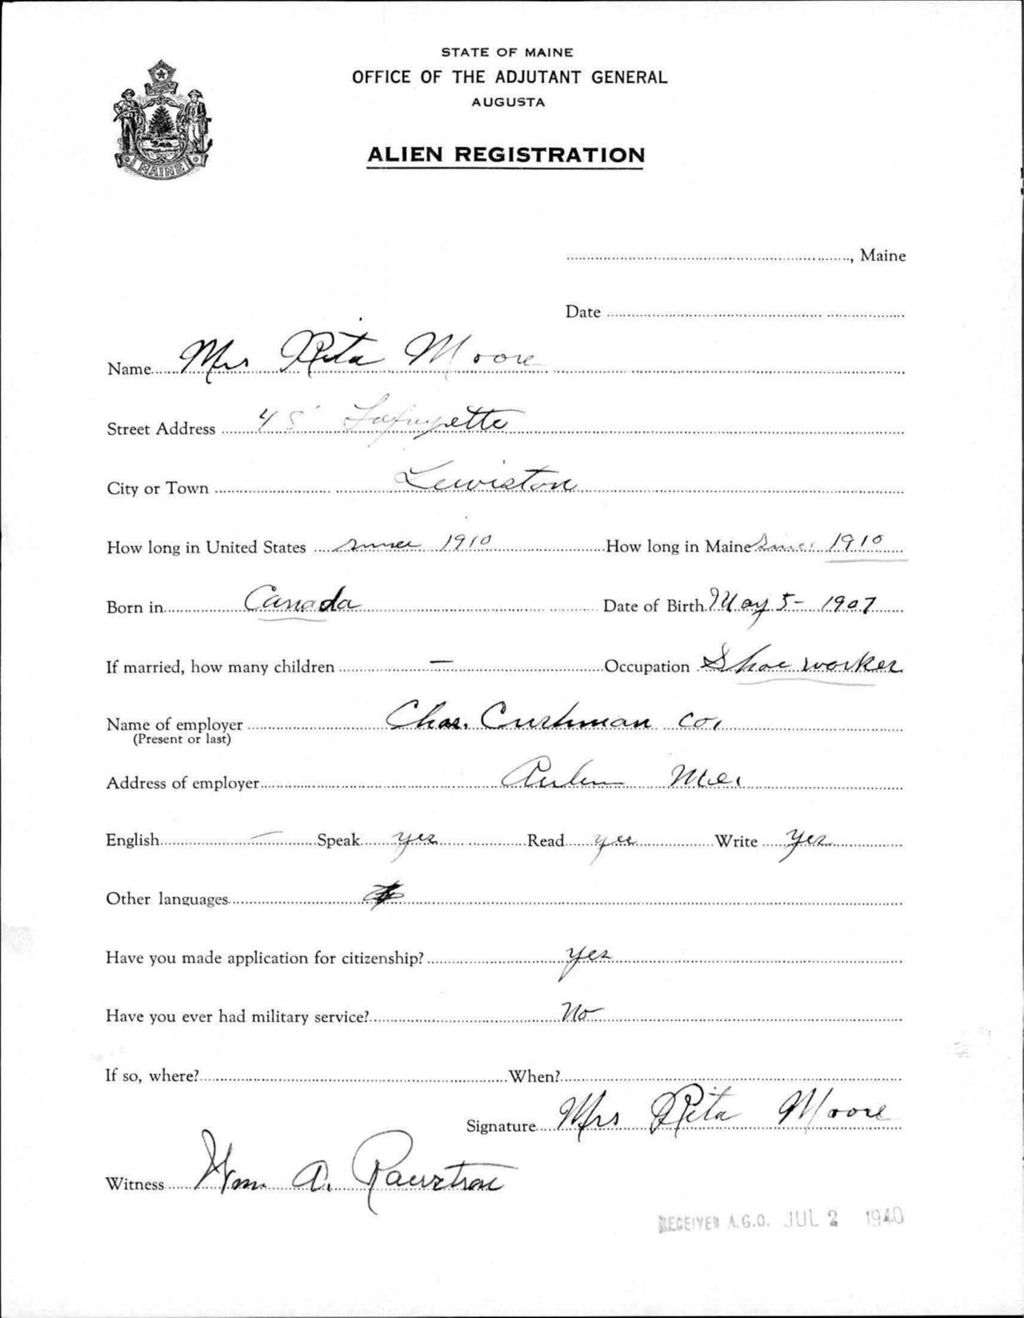 STATE OF MAINE
OFFICE OF THE ADJUTANT GENERAL
AUGUSTA
MAINE
ALIEN REGISTRATION
, Maine
Date
Name Mrs Rita Moore
Street Address 45 Lafayette
City or Town Lewiston
How long in United States since 1910 How long in Maine Since 1910
Born in Canada Date of Birth May 5 - 1907
If married, how many children — Occupation Shoe worker
Name of employer Chas. Cushman Co.
(Present or last)
Address of employer Auburn Me.
English — Speak yes Read yes Write yes
Other languages
Have you made application for citizenship? yes
Have you ever had military service? No
If so, where? When?
Signature Mrs Rita Moore
Witness Wm. A.
RECEIVED A.G.O. JUL 2 1940